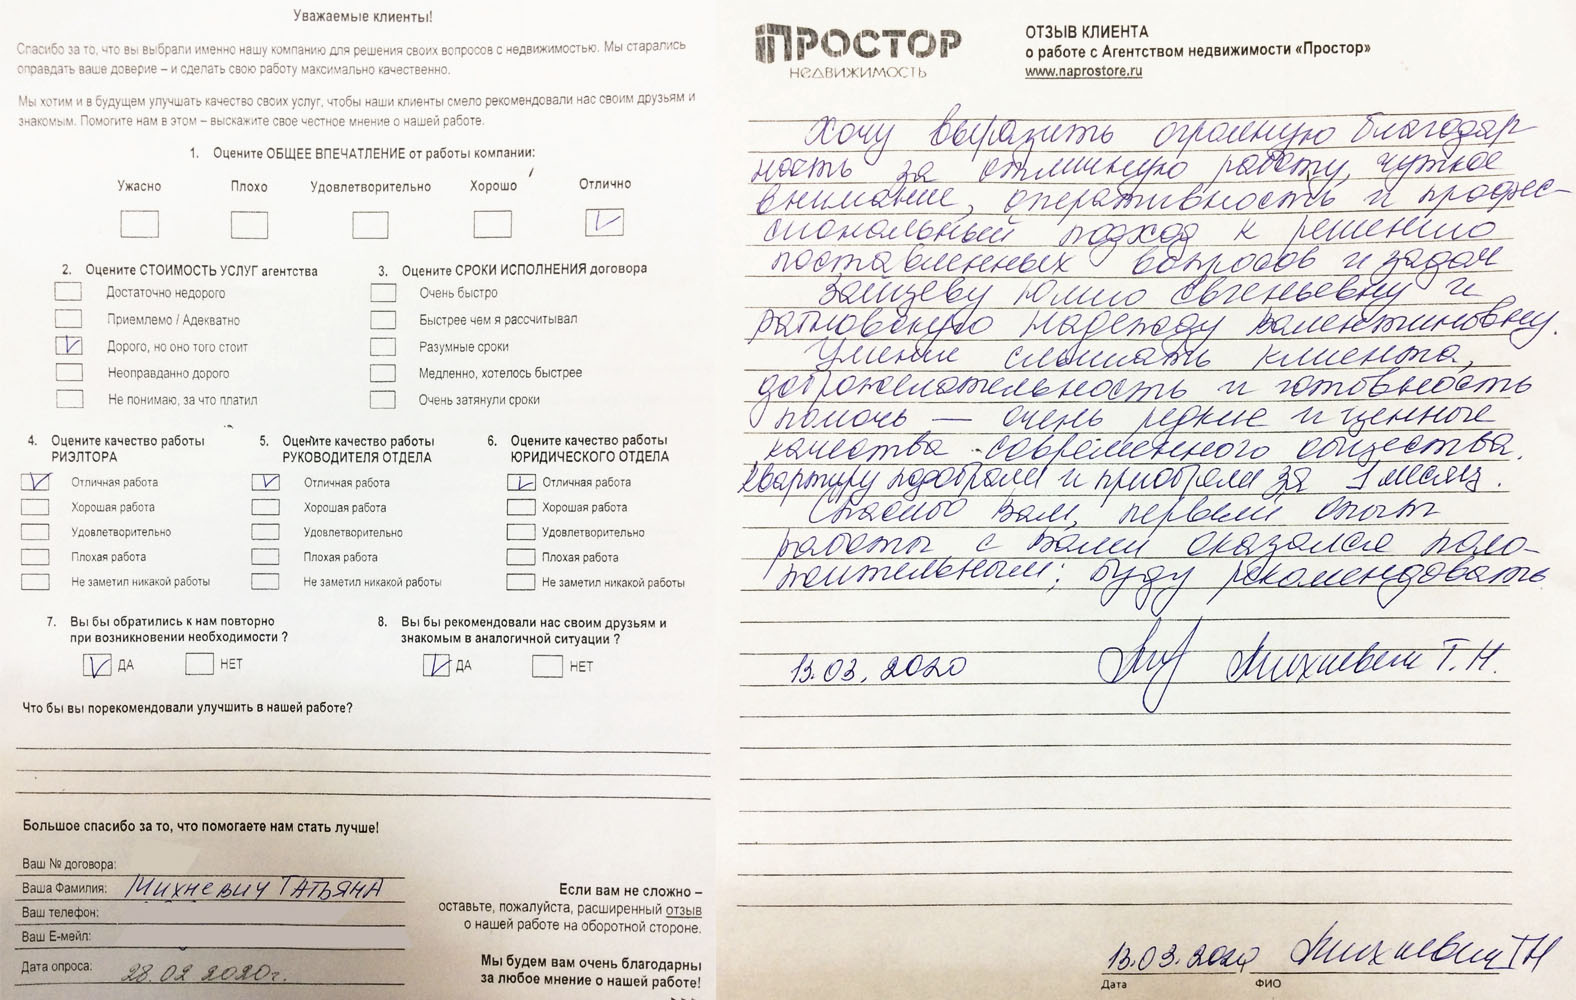 Уважаемые клиенты!
Спасибо за то, что вы выбрали именно нашу компанию для решения своих вопросов с недвижимостью. Мы старались
оправдать ваше доверие – и сделать свою работу максимально качественно.
Мы хотим и в будущем улучшать качество своих услуг, чтобы наши клиенты смело рекомендовали нас своим друзьям и
знакомым. Помогите нам в этом – выскажите свое честное мнение о нашей работе.
1. Оцените ОБЩЕЕ ВПЕЧАТЛЕНИЕ от работы компании:
Ужасно Плохо Удовлетворительно Хорошо Отлично
2. Оцените СТОИМОСТЬ УСЛУГ агентства
Достаточно недорого
Приемлемо / Адекватно
Дорого, но оно того стоит
Неоправданно дорого
Не понимаю, за что платил
3. Оцените СРОКИ ИСПОЛНЕНИЯ договора
Очень быстро
Быстрее чем я рассчитывал
Разумные сроки
Медленно, хотелось быстрее
Очень затянули сроки
4. Оцените качество работы
РИЭЛТОРА
Отличная работа
Хорошая работа
Удовлетворительно
Плохая работа
Не заметил никакой работы
5. Оцените качество работы
РУКОВОДИТЕЛЯ ОТДЕЛА
Отличная работа
Хорошая работа
Удовлетворительно
Плохая работа
Не заметил никакой работы
6. Оцените качество работы
ЮРИДИЧЕСКОГО ОТДЕЛА
Отличная работа
Хорошая работа
Удовлетворительно
Плохая работа
Не заметил никакой работы
7. Вы бы обратились к нам повторно
при возникновении необходимости ?
ДА НЕТ
8. Вы бы рекомендовали нас своим друзьям и
знакомым в аналогичной ситуации ?
ДА НЕТ
Что бы вы порекомендовали улучшить в нашей работе?
Большое спасибо за то, что помогаете нам стать лучше!
Ваш № договора:
Ваша Фамилия: Михневич Татьяна
Ваш телефон:
Ваш Е-мейл:
Дата опроса: 28.02 2020г.
Если вам не сложно –
оставьте, пожалуйста, расширенный отзыв
о нашей работе на оборотной стороне.
Мы будем вам очень благодарны
за любое мнение о нашей работе!
>>>
ПРОСТОР
НЕДВИЖИМОСТЬ
ОТЗЫВ КЛИЕНТА
о работе с Агентством недвижимости «Простор»
www.naprostore.ru
Хочу выразить огромную благодар
ность за отличную работу, чуткое
внимание, оперативность и профес-
сиональный подход к решению
поставленных вопросов и задач
Зайцеву Юлию Евгеньевну и
Ратновскую Надежду Валентиновну.
Умение слышать клиента,
доброжелательность и готовность
помочь — очень редкие и ценные
качества современного общества.
Квартиру подобрали и приобрели за 1 месяц.
Спасибо Вам, первый опыт
работы с Вами оказался поло-
жительным; буду рекомендовать
13.03.2020 Михневич Т.Н.
13.03.2020 Михневич ТН
Дата ФИО